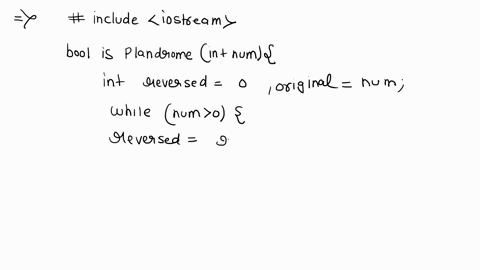 => # include <iostream>
bool is Plandrome (int num){
int reversed = 0 , original = num;
while (num>0) {
reversed =